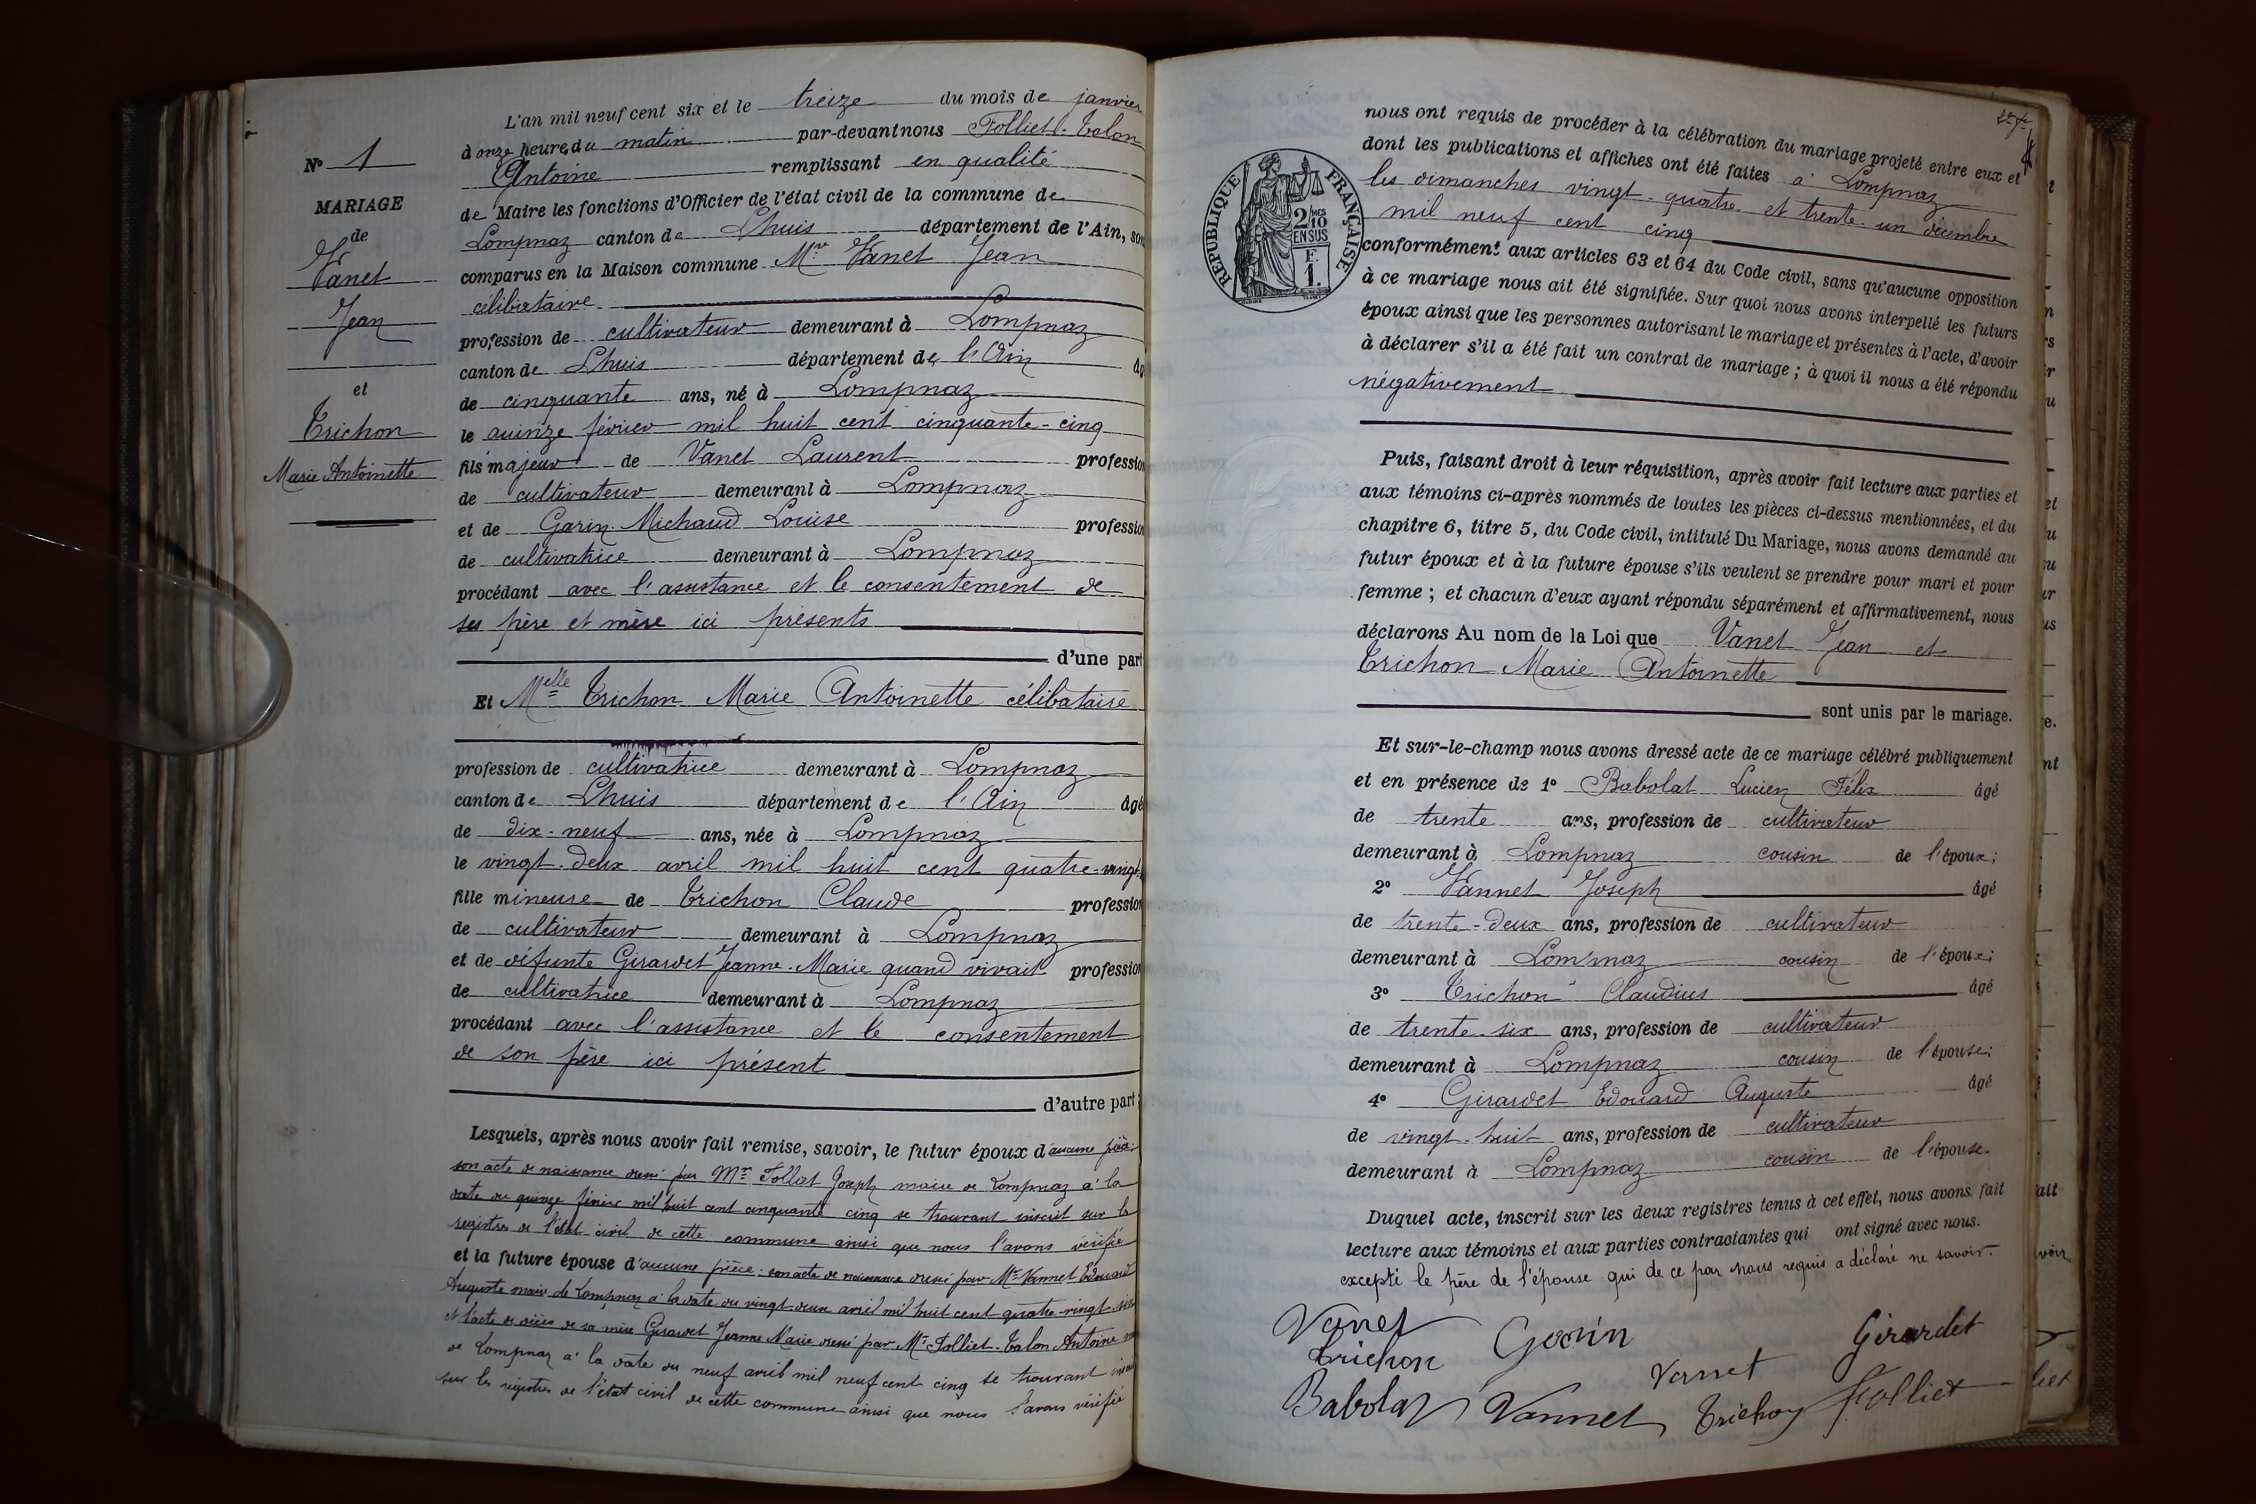 N° 1
MARIAGE
de
Vanet
Jean
et
Trichon
Marie Antoinette
L'an mil neuf cent six et le treize du mois de janvier
à onze heures du matin par-devant nous Folliet-Talon
Antoine remplissant en qualité
de Maire les fonctions d'Officier de l'état civil de la commune de
Lompnaz canton de Lhuis département de l'Ain, son
comparus en la Maison commune Mr Vanet Jean
célibataire
profession de cultivateur demeurant à Lompnaz
canton de Lhuis département de l'Ain âg
de cinquante ans, né à Lompnaz
le quinze février mil huit cent cinquante-cinq
fils majeur de Vanet Laurent profession
de cultivateur demeurant à Lompnaz
et de Garin-Michaud Louise profession
de cultivatrice demeurant à Lompnaz
procédant avec l'assistance et le consentement de
ses père et mère ici présents
d'une part
Et Melle Trichon Marie Antoinette célibataire
profession de cultivatrice demeurant à Lompnaz
canton de Lhuis département de l'Ain âgé
de dix-neuf ans, née à Lompnaz
le vingt-deux avril mil huit cent quatre-vingt
fille mineure de Trichon Claude profession
de cultivateur demeurant à Lompnaz
et de défunte Girardet Jeanne-Marie quand vivait profession
de cultivatrice demeurant à Lompnaz
procédant avec l'assistance et le consentement
de son père ici présent
d'autre part ;
Lesquels, après nous avoir fait remise, savoir, le futur époux d'aucune pièce:
son acte de naissance dressé par Mr Folliet Joseph maire de Lompnaz à la
date du quinze février mil huit cent cinquante cinq se trouvant inscrit sur les
registres de l'état civil de cette commune ainsi que nous l'avons vérifié
et la future épouse d'aucune pièce: son acte de naissance dressé par Mr Vannet Edouard
Auguste maire de Lompnaz à la date du vingt-deux avril mil huit cent quatre-vingt-six
et l'acte de décès de sa mère Girardet Jeanne Marie dressé par Mr Folliet-Talon Antoine
de Lompnaz à la date du neuf avril mil neuf cent cinq se trouvant
sur les registres de l'état civil de cette commune ainsi que nous l'avons vérifié
RÉPUBLIQUE FRANÇAISE
2/10 EN SUS
F. 1.
nous ont requis de procéder à la célébration du mariage projeté entre eux et
dont les publications et affiches ont été faites à Lompnaz
les dimanches vingt-quatre et trente-un décembre
mil neuf cent cinq
conformément aux articles 63 et 64 du Code civil, sans qu'aucune opposition
à ce mariage nous ait été signifiée. Sur quoi nous avons interpellé les futurs
époux ainsi que les personnes autorisant le mariage et présentes à l'acte, d'avoir
à déclarer s'il a été fait un contrat de mariage ; à quoi il nous a été répondu
négativement
Puis, faisant droit à leur réquisition, après avoir fait lecture aux parties et
aux témoins ci-après nommés de toutes les pièces ci-dessus mentionnées, et du
chapitre 6, titre 5, du Code civil, intitulé Du Mariage, nous avons demandé au
futur époux et à la future épouse s'ils veulent se prendre pour mari et pour
femme ; et chacun d'eux ayant répondu séparément et affirmativement, nous
déclarons Au nom de la Loi que Vanet Jean et
Trichon Marie Antoinette
sont unis par le mariage.
Et sur-le-champ nous avons dressé acte de ce mariage célébré publiquement
et en présence de 1° Babolat Lucien Félix âgé
de trente ans, profession de cultivateur
demeurant à Lompnaz cousin de l'époux;
2° Vannet Joseph âgé
de trente-deux ans, profession de cultivateur
demeurant à Lompnaz cousin de l'époux;
3° Trichon Claudius âgé
de trente-six ans, profession de cultivateur
demeurant à Lompnaz cousin de l'épouse;
4° Girardet Edouard Auguste âgé
de vingt-huit ans, profession de cultivateur
demeurant à Lompnaz cousin de l'épouse.
Duquel acte, inscrit sur les deux registres tenus à cet effet, nous avons fait
lecture aux témoins et aux parties contractantes qui ont signé avec nous.
excepté le père de l'épouse qui de ce par nous requis a déclaré ne savoir.
Vanet Garin Girardet
Trichon Vannet
Babolat Vannet Trichon Folliet